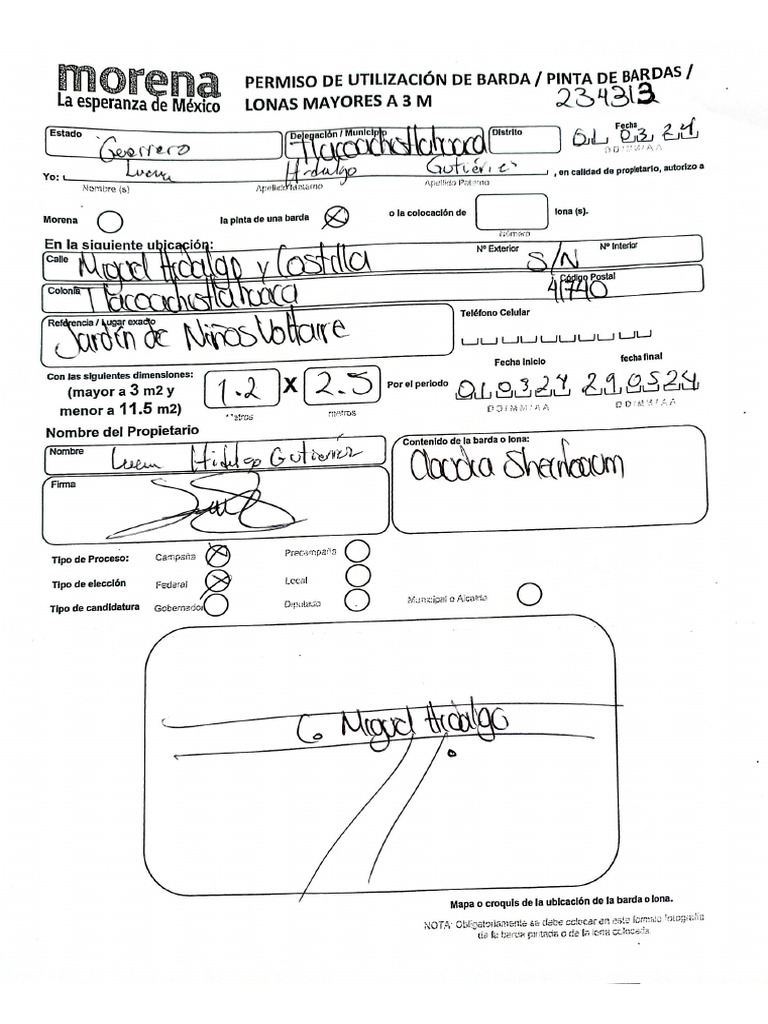 morena
La esperanza de México
PERMISO DE UTILIZACIÓN DE BARDA / PINTA DE BARDAS /
LONAS MAYORES A 3 M
234313
Estado Guerrero Delegación / Municipio Tlacoachistlahuaca Distrito Fecha 01 03 24
DD/MM/AA
Yo: Hidalgo Gutiérrez , en calidad de propietario, autorizo a
Nombre (s) Apellido Materno Apellido Paterno
Morena la pinta de una barda o la colocación de lona (s).
Número
En la siguiente ubicación:
Calle Miguel Hidalgo y Costilla Nº Exterior S/N Nº Interior
Colonia Tlacoachistlahuaca Código Postal 41740
Referencia / Lugar exacto Jardín de Niños Voltaire Teléfono Celular
Con las siguientes dimensiones:
(mayor a 3 m2 y
menor a 11.5 m2)
1.2 X 2.5
metros metros
Por el periodo
Fecha Inicio fecha final
010324 290524
DD/MM/AA DD/MM/AA
Nombre del Propietario
Nombre Hidalgo Gutierrez
Firma
Contenido de la barda o lona:
Claudia Sheinbaum
Tipo de Proceso: Campaña Precampaña
Tipo de elección Federal Local
Tipo de candidatura Gobernador Diputado Municipal o Alcaldía
C. Miguel Hidalgo
Mapa o croquis de la ubicación de la barda o lona.
NOTA: Obligatoriamente se debe colocar en este formato fotografía
de la barda pintada o de la lona colocada.